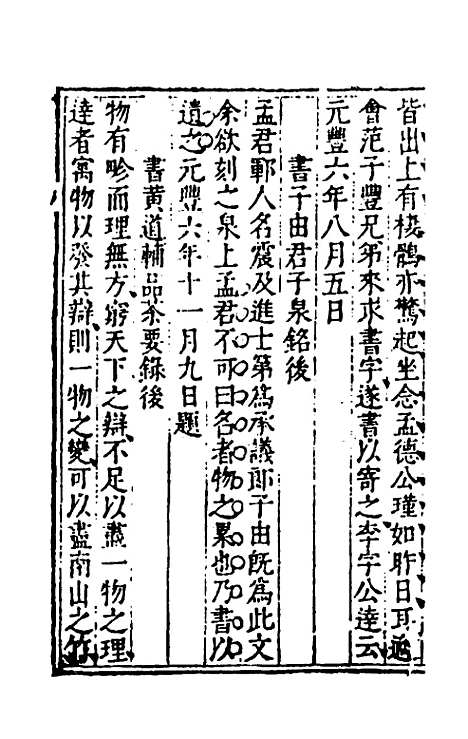 皆出上有棲鶻亦驚起坐念孟德公瑾如昨日耳適
會范子豐兄弟來求書字遂書以寄之李字公達云
元豐六年八月五日
書子由君子泉銘後
孟君鄆人名震及進士第爲承議郎子由既爲此文
余欲刻之泉上孟君不可曰名者物之累也乃書以
遺之元豐六年十一月九日題
書黃道輔品茶要錄後
物有畛而理無方窮天下之辯不足以盡一物之理
達者寓物以發其辯則一物之變可以盡南山之竹